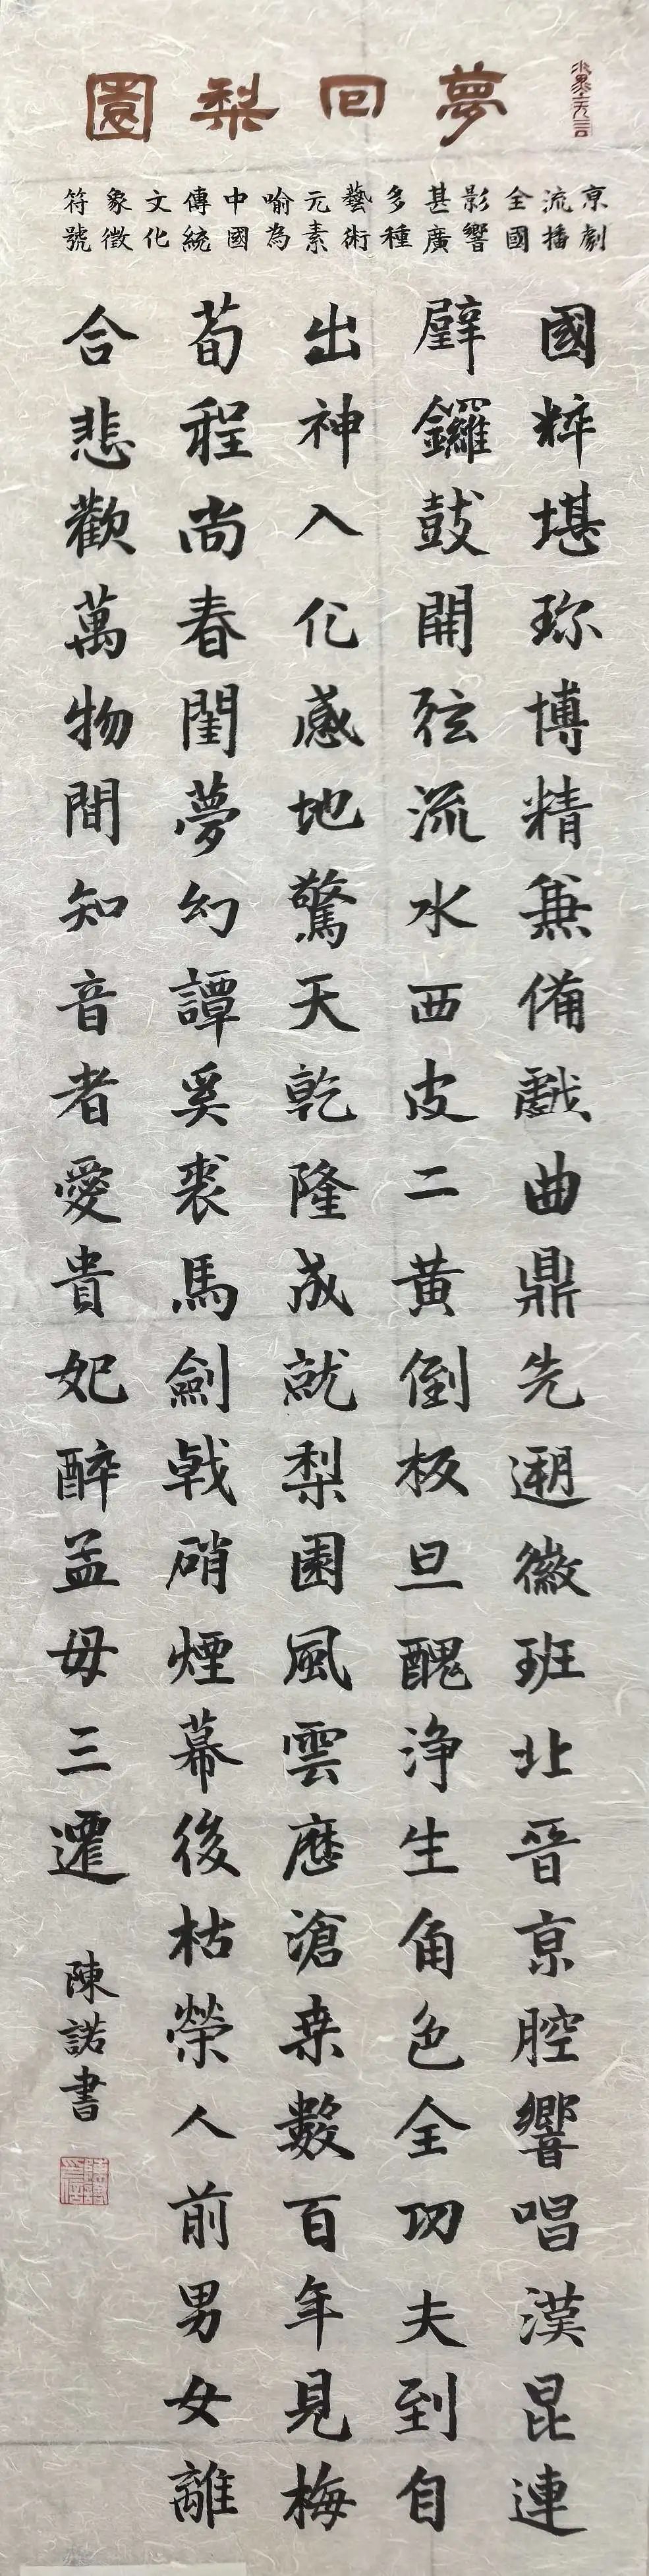 夢回梨園
京劇
流播
全國
影響
甚廣
多種
藝術
元素
喻為
中國
傳統
文化
象徵
符號
國粹堪珎博精兼備戲曲鼎先遡徽班北晉京腔響唱漢昆連
璧鑼鼓開弦流水西皮二黃倒板旦醜淨生角色全功夫到自
出神入化感地驚天乾隆成就梨園風雲歷滄桒數百年見梅
荀程尚春閨夢幻譚奚裘馬劍戟硝煙幕後枯榮人前男女離
合悲歡萬物間知音者愛貴妃醉孟母三遷
陳諾書